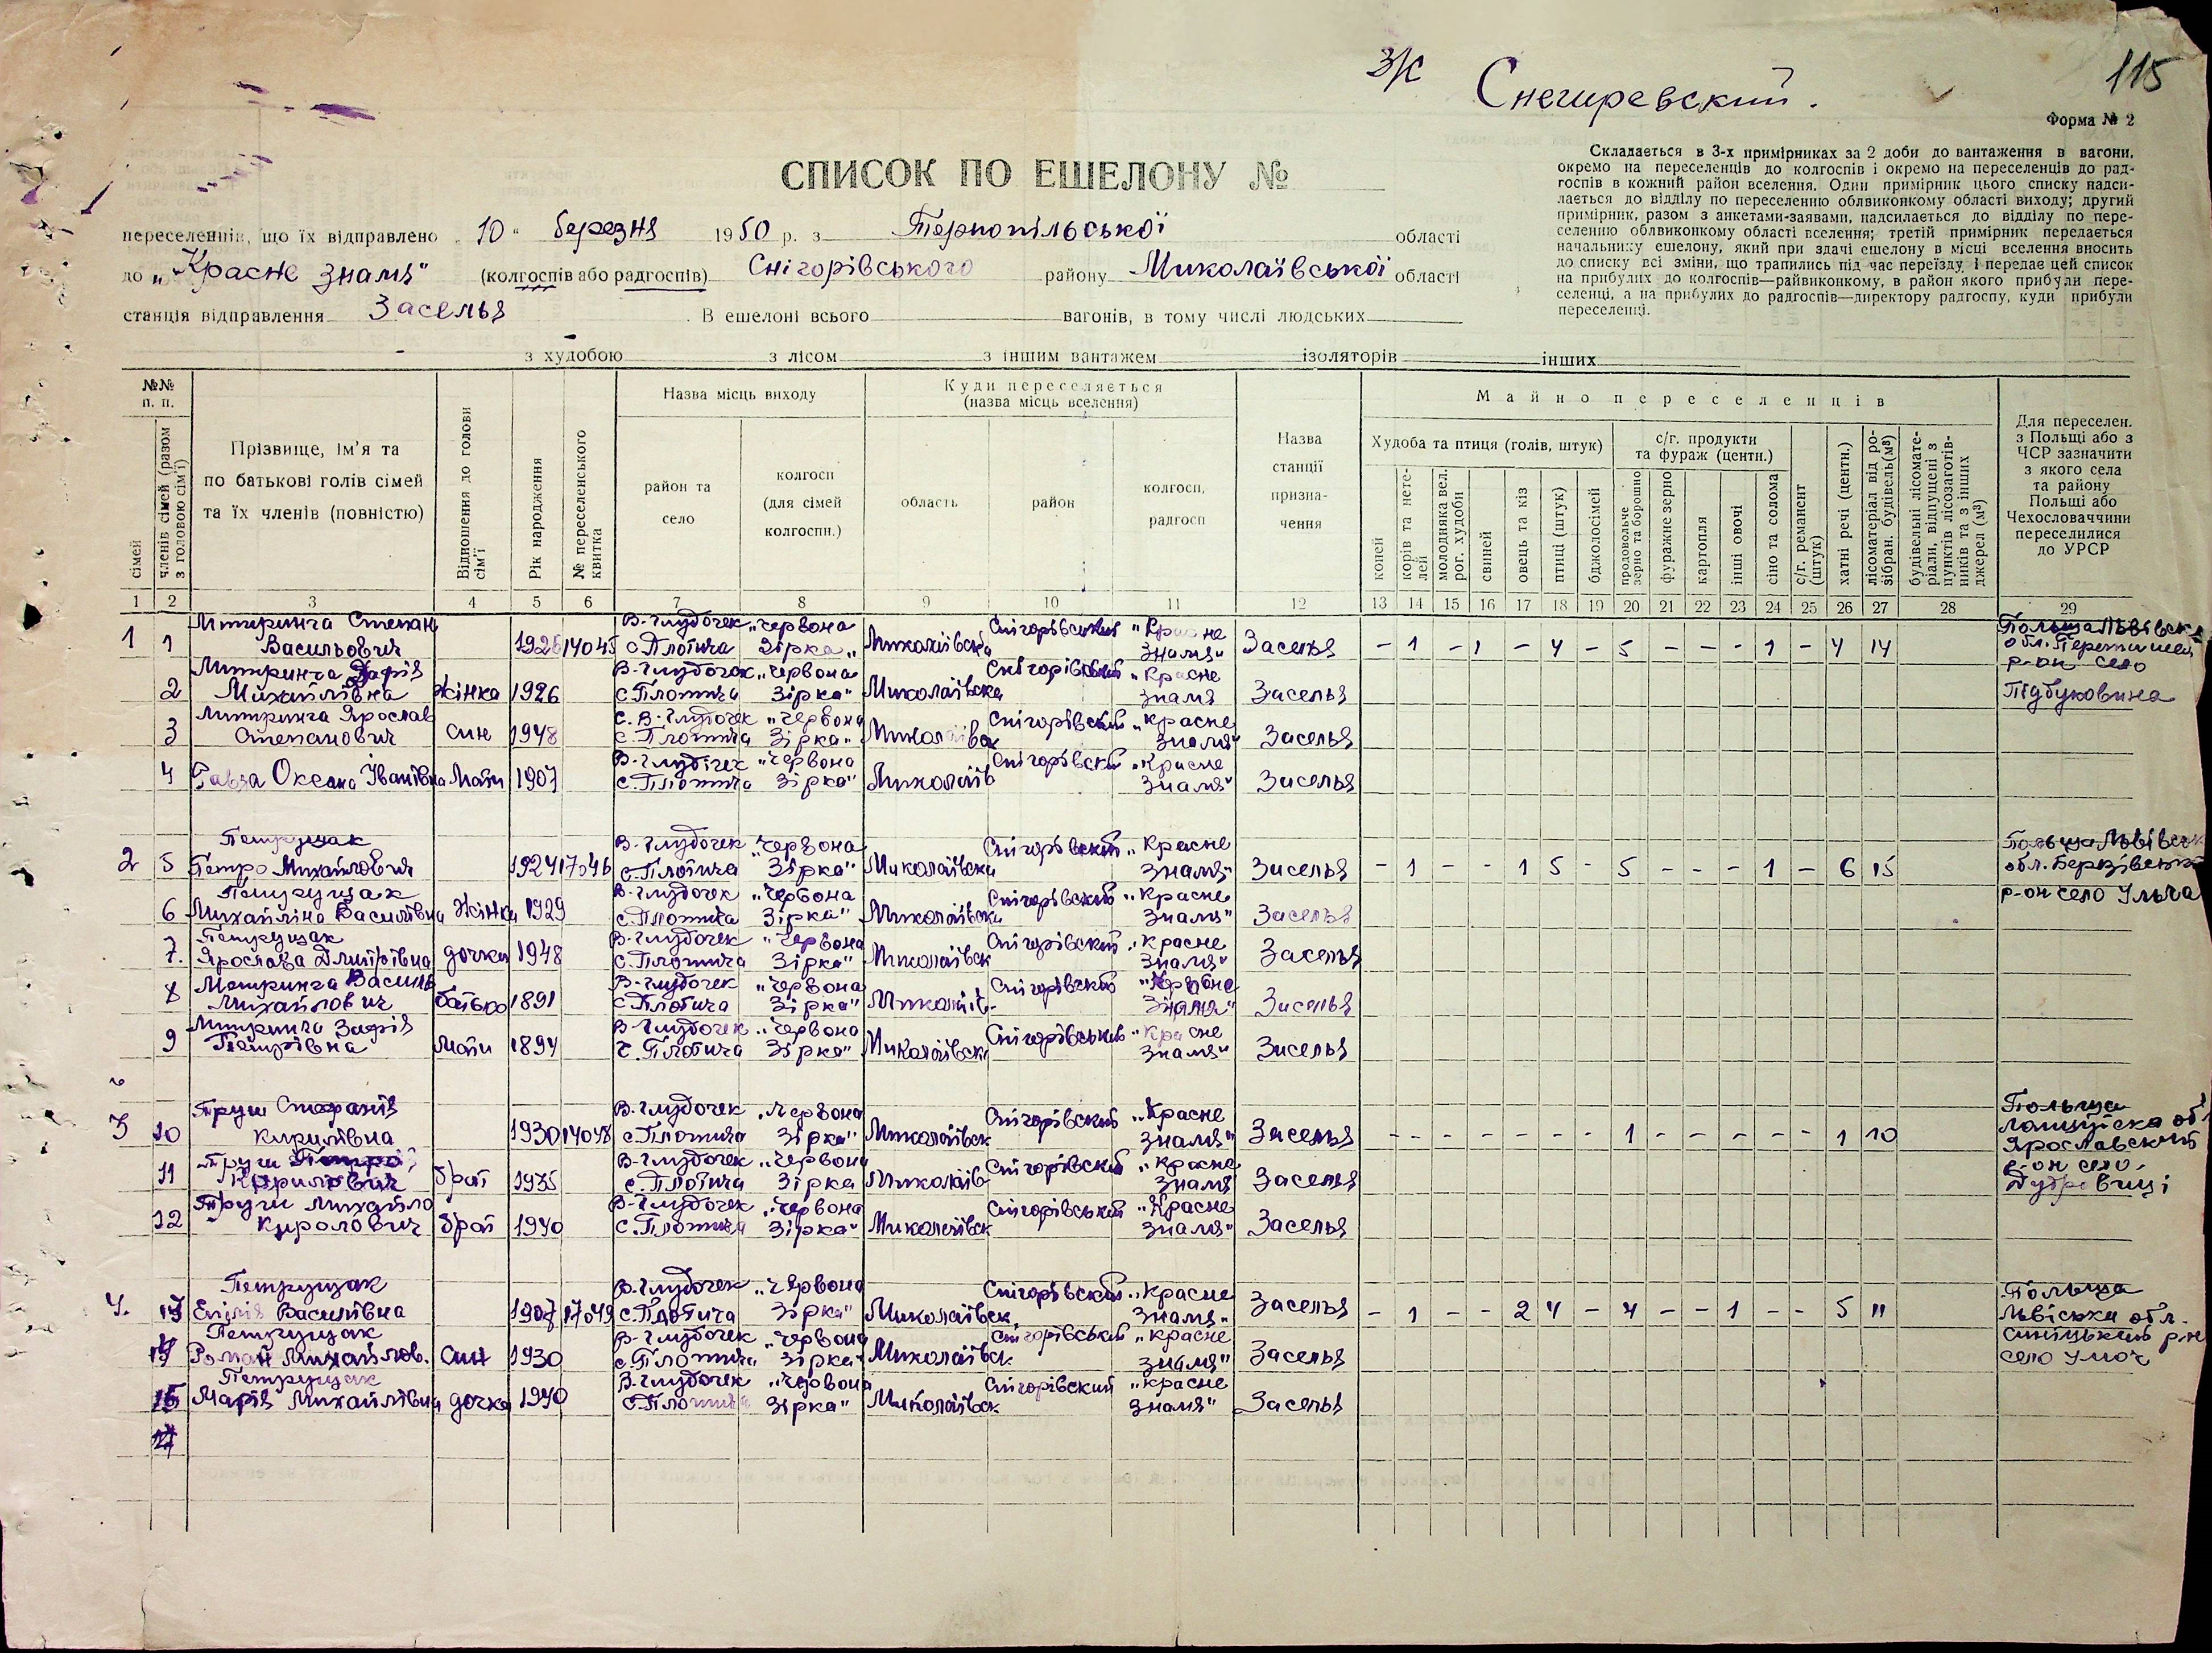 З/с Снегиревский. 115
Форма № 2
Складається в 3-х примірниках за 2 доби до вантаження в вагони,
окремо на переселенців до колгоспів і окремо на переселенців до рад-
госпів в кожний район вселення. Один примірник цього списку надси-
лається до відділу по переселенню облвиконкому області виходу; другий
примірник, разом з анкетами-заявами, надсилається до відділу по пере-
селенню облвиконкому області вселення; третій примірник передається
начальнику ешелону, який при здачі ешелону в місці вселення вносить
до списку всі зміни, що трапились під час переїзду і передає цей список
на прибулих до колгоспів—райвиконкому, в район якого прибули пере-
селенці, а на прибулих до радгоспів—директору радгоспу, куди прибули
переселенці.
СПИСОК ПО ЕШЕЛОНУ №
переселенців, що їх відправлено „10" березня 1950 р. з Тернопільської області
до „Красне знамя" (колгоспів або радгоспів) Снігорівського району Миколаївської області
станція відправлення Заселья . В ешелоні всього вагонів, в тому числі людських
з худобою з лісом з іншим вантажем ізоляторів інших
№№ п. п.
сімей
членів сімей (разом з головою сім'ї)
Прізвище, ім'я та
по батькові голів сімей
та їх членів (повністю)
Відношення до голови сім'ї
Рік народження
№ переселенського квитка
Назва місць виходу
район та
село
колгосп
(для сімей
колгоспн.)
Куди переселяється
(назва місць вселення)
область
район
колгосп,
радгосп
Назва
станції
призна-
чення
Майно переселенців
Худоба та птиця (голів, штук)
коней
корів та нете-
лей
молодняка вел.
рог. худоби
свиней
овець та кіз
птиці (штук)
бджолосімей
с/г. продукти
та фураж (центн.)
продовольче
зерно та борошно
фуражне зерно
картопля
інші овочі
сіно та солома
с/г. реманент
(штук)
хатні речі (центн.)
лісоматеріал від ро-
зібран. будівель (м³)
будівельні лісомате-
ріали, відпущені з
пунктів лісозаготів-
ників та з інших
джерел (м³)
Для переселен.
з Польщі або з
ЧСР зазначити
з якого села
та району
Польщі або
Чехословаччини
переселилися
до УРСР
1 2 3 4 5 6 7 8 9 10 11 12 13 14 15 16 17 18 19 20 21 22 23 24 25 26 27 28 29
Митринга Степан В-Глубочек „Червона Снігорівський „Красне Польща Львівськ
1 1 Васильович 1926 17045 с Плотича Зірка" Миколаївська знамя" Заселья - 1 - 1 - 4 - 5 - - - 1 - 4 14 обл. Перемишел
Митринга Дафія В-Глубочок „Червона Снігорівський „Красне р-он село
2 Михайлівна жінка 1926 с Плотича Зірка" Миколаївська знамя Заселья Підбуковина
Митринга Ярослав с. В-Глубочек „Червона Снігорівський „Красне
3 Степанович син 1948 с. Плотича Зірка" знамя" Заселья
В-Глубічек „Червона Снігорівский „Красне
4 Оксана Іванівна мати 1907 с. Плотича Зірка" Миколаїв знамя" Заселья
Петрущак В-Глубочек „Червона Снігорівский „Красне Польща Львівськ
2 5 Петро Михайлович 1924 17046 с. Плотича Зірка" Миколаївськи знамя" Заселья - 1 - - 1 5 - 5 - - - 1 - 6 15 обл. Березівськ
Петрущак В-Глубочок „Червона Снігорівський „Красне р-он село Ульча
6 Михайліна Василівна жінка 1929 с. Плотича Зірка" Миколаївськи знамя" Заселья
Петрущак В-Глубочек „Червона Снігорівский „Красне
7. Ярослава Дмитрівна дочка 1948 с. Плотича Зірка" Миколаївськ знамя" Заселья
Митринга Василь В-Глубочек „Червона Снігорівский
8 Михайлович батько 1891 с Плотича Зірка" Миколаїв- знамя" Заселья
Митринга Зафія В-Глубочек „Червона Снігорівський „Красне
9 Петрівна мати 1894 с. Плотича Зірка" Миколаївськ знамя" Заселья
Труш Стефанія В-Глубочек „Червона Снігорівський „Красне Польща
3 10 Кирилівна 1930 17048 с. Плотича Зірка" Миколаївськ знамя" Заселья - - - - - - - 1 - - - - - 1 10 обл
Труш Петро В-Глубочек „Червона Снігорівский „Красне Ярославский
11 Кирилович брат 1935 с. Плотича Зірка Миколаїв- знамя Заселья р-он село
Труш Михайло В-Глубочек „Червона Снігорівський „Красне
12 Киролович брат 1940 с. Плотича Зірка" Миколаївськ знамя" Заселья
Петрущак В-Глубочек „Червона Снігорівский „Красне Польща
4. 13 Василівна 1907 17049 с. Плотича Зірка" Миколаївськ знамя" Заселья - 1 - - 2 4 - 4 - - 1 - - 5 11 Львіська обл.
Петрущак В-Глубочек „Червона Снігорівський „Красне р-н
14 Роман Михайлов. син 1930 с. Плотича Зірка" Миколаївськ знамя" Заселья село
Петрущак В-Глубочек „Червона Снігорівский „Красне
15 Марія Михайлівна дочка 1940 с. Плотича Зірка" Миколаївськ знамя" Заселья